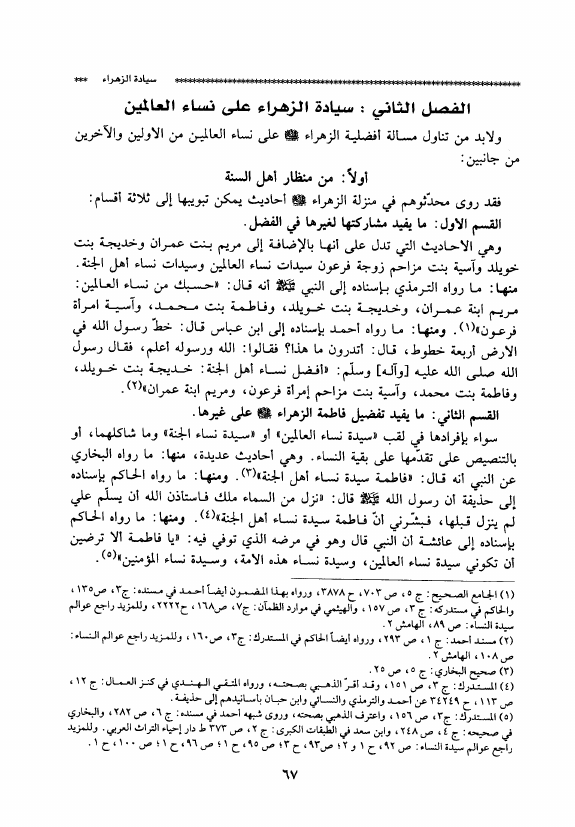 سيادة الزهراء ***
الفصل الثاني : سيادة الزهراء على نساء العالمين
ولابد من تناول مسالة افضلية الزهراء ﷺ على نساء العالمين من الاولين والآخرين
من جانبين:
أولاً: من منظار أهل السنة
فقد روى محدّثوهم في منزلة الزهراء أحاديث يمكن تبويبها إلى ثلاثة أقسام:
القسم الاول: ما يفيد مشاركتها لغيرها في الفضل.
وهي الاحاديث التي تدل على أنها بالإضافة إلى مريم بنت عمران وخديجة بنت
خويلد وآسية بنت مزاحم زوجة فرعون سيدات نساء العالمين وسيدات نساء أهل الجنة.
منها: ما رواه الترمذي بإسناده إلى النبي ﷺ أنه قال: «حسبك من نساء العالمين:
مريم ابنة عمران، وخديجة بنت خويلد، وفاطمة بنت محمد، وآسية امرأة
فرعون»(١). ومنها: ما رواه احمد بإسناده إلى ابن عباس قال: خطّ رسول الله في
الارض أربعة خطوط، قال: أتدرون ما هذا؟ فقالوا: الله ورسوله أعلم، فقال رسول
الله صلى الله عليه [وآله] وسلّم: «افضل نساء أهل الجنة: خديجة بنت خويلد،
وفاطمة بنت محمد، وآسية بنت مزاحم إمرأة فرعون، ومريم ابنة عمران»(٢).
القسم الثاني: ما يفيد تفضيل فاطمة الزهراء على غيرها.
سواء بإفرادها في لقب «سيدة نساء العالمين» أو «سيدة نساء الجنة» وما شاكلهما، أو
بالتنصيص على تقدّمها على بقية النساء. وهي أحاديث عديدة، منها: ما رواه البخاري
عن النبي أنه قال: «فاطمة سيدة نساء أهل الجنة»(٣). ومنها: ما رواه الحاكم بإسناده
إلى حذيفة أن رسول الله ﷺ قال: «نزل من السماء ملك فاستاذن الله أن يسلّم علي
لم ينزل قبلها، فبشّرني أنّ فاطمة سيدة نساء أهل الجنة»(٤). ومنها: ما رواه الحاكم
بإسناده إلى عائشة أن النبي قال وهو في مرضه الذي توفي فيه: «يا فاطمة الا ترضين
أن تكوني سيدة نساء العالمين، وسيدة نساء هذه الامة، وسيدة نساء المؤمنين»(٥).
(١) الجامع الصحيح: ج ٥، ص ٧٠٣، ح ٣٨٧٨، ورواه بهذا المضمون أيضاً احمد في مسنده: ج٣، ص١٣٥،
والحاكم في مستدركه: ج ٣، ص ١٥٧، والهيثمي في موارد الظمآن: ج٧، ص١٦٨، ح٢٢٢٢، وللمزيد راجع عوالم
سيدة النساء: ص ٨٩، الهامش ٢.
(٢) مسند أحمد: ج ١، ص ٢٩٣، ورواه أيضاً الحاكم في المستدرك: ج٣، ص١٦٠، وللمزيد راجع عوالم النساء:
ص ١٠٨، الهامش ٢.
(٣) صحيح البخاري: ج ٥، ص ٢٥.
(٤) المستدرك: ج ٣، ص ١٥١، وقد اقرّ الذهبي بصحته، ورواه المتقي الهندي في كنز العمال: ج ١٢،
ص ١١٣، ح ٣٤٢٤٩ عن أحمد والترمذي والنسائي وابن حبان باسانيدهم إلى حذيفة.
(٥) المستدرك: ج٣، ص ١٥٦، واعترف الذهبي بصحته، وروى شبهه أحمد في مسنده: ج ٦، ص ٢٨٢، والبخاري
في صحيحه: ج ٤، ص ٢٤٨، وابن سعد في الطبقات الكبرى: ج ٢، ص ٣٧٣ ط دار إحياء التراث العربي. وللمزيد
راجع عوالم سيدة النساء: ص ٩٢، ح ١ و٢؛ ص٩٣، ح ٣؛ ص ٩٥، ح ١؛ ص ٩٦، ح ١؛ ص ١٠٠، ح ١.
٦٧